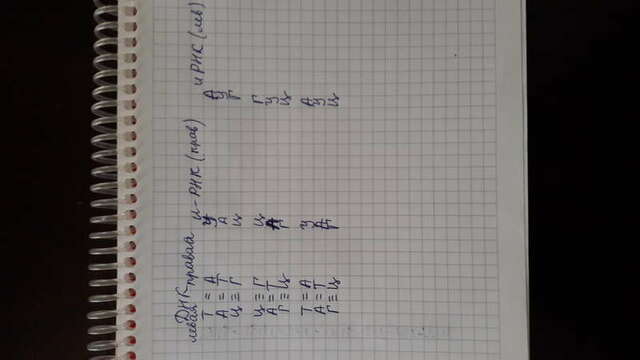 ДНК
левая правая и-РНК (прав) и РНК (лев)
Т = А У А
А = Т А У
Ц ≡ Г Ц Г
Ц ≡ Г Ц Г
А = Т А У
Г ≡ Ц Г Ц
Т = А У А
А = Т А У
Г ≡ Ц Г Ц